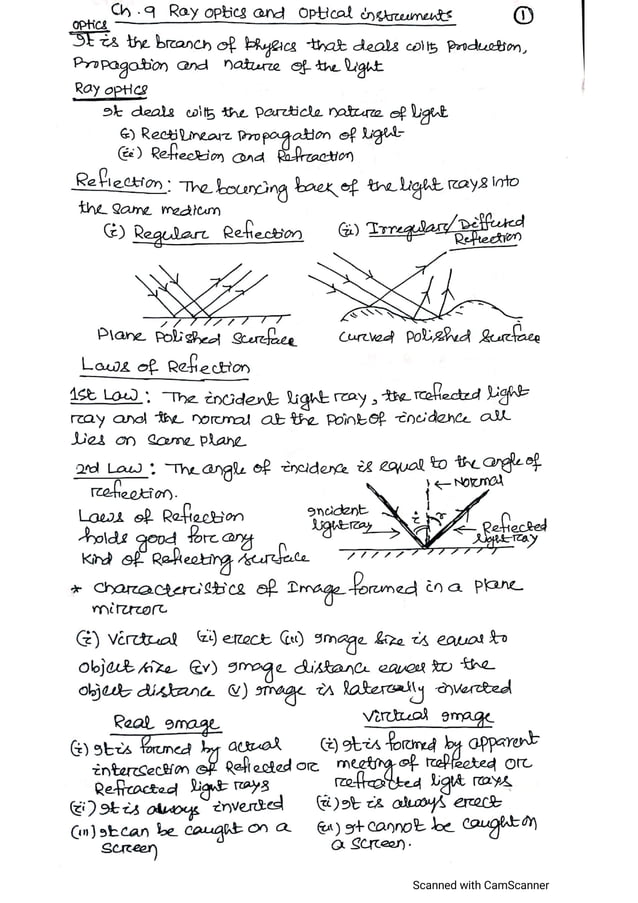 Ch. 9 Ray optics and optical instruments
1
optics
It is the branch of physics that deals with production,
Propagation and nature of the light
Ray optics
It deals with the particle nature of light
(i) Rectilinear propagation of light
(ii) Reflection and Refraction
Reflection: The bouncing back of the light rays into
the same medium
(i) Regular Reflection
(ii) Irregular/Diffused
Reflection
Plane polished surface
curved polished surface
Laws of Reflection
1st Law: The incident light ray, the reflected light
ray and the normal at the point of incidence all
lies on same plane
2nd Law: The angle of incidence is equal to the angle of
reflection.
Laws of Reflection
holds good for any
kind of Reflecting surface
Normal
Incident
light ray
i r
Reflected
light ray
* characteristics of Image formed in a plane
mirror
(i) Virtual (ii) erect (iii) Image size is equal to
object size (iv) Image distance equal to the
object distance (v) Image is laterally inverted
Real Image
(i) It is formed by actual
intersection of Reflected or
Refracted light rays
(ii) It is always inverted
(iii) It can be caught on a
screen
Virtual Image
(i) It is formed by apparent
meeting of reflected or
refracted light rays
(ii) It is always erect
(iii) It cannot be caught on
a screen.
Scanned with CamScanner